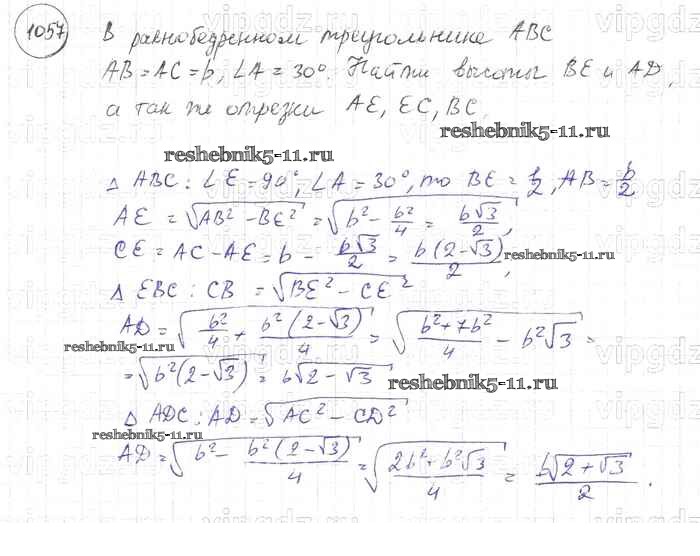 1057 В равнобедренном треугольнике ABC
AB = AC = b, ∠A = 30°. Найти высоты BE и AD,
а так же отрезки AE, EC, BC.
reshebnik5-11.ru
reshebnik5-11.ru
Δ ABC : ∠E = 90°, ∠A = 30°, то BE = ½, AB = b/2
AE = √(AB² - BE²) = √(b² - b²/4) = b√3/2,
CE = AC - AE = b - b√3/2 = b(2-√3)/2,
reshebnik5-11.ru
Δ EBC : CB = √(BE² - CE²)
AD = √(b²/4 + b²(2-√3)/4) = √((b²+7b²)/4 - b²√3) =
reshebnik5-11.ru
= √(b²(2-√3)) = b√(2-√3)
reshebnik5-11.ru
Δ ADC : AD = √(AC² - CD²)
reshebnik5-11.ru
AD = √(b² - b²(2-√3)/4) = √((2b²+b²√3)/4) = b√(2+√3)/2.